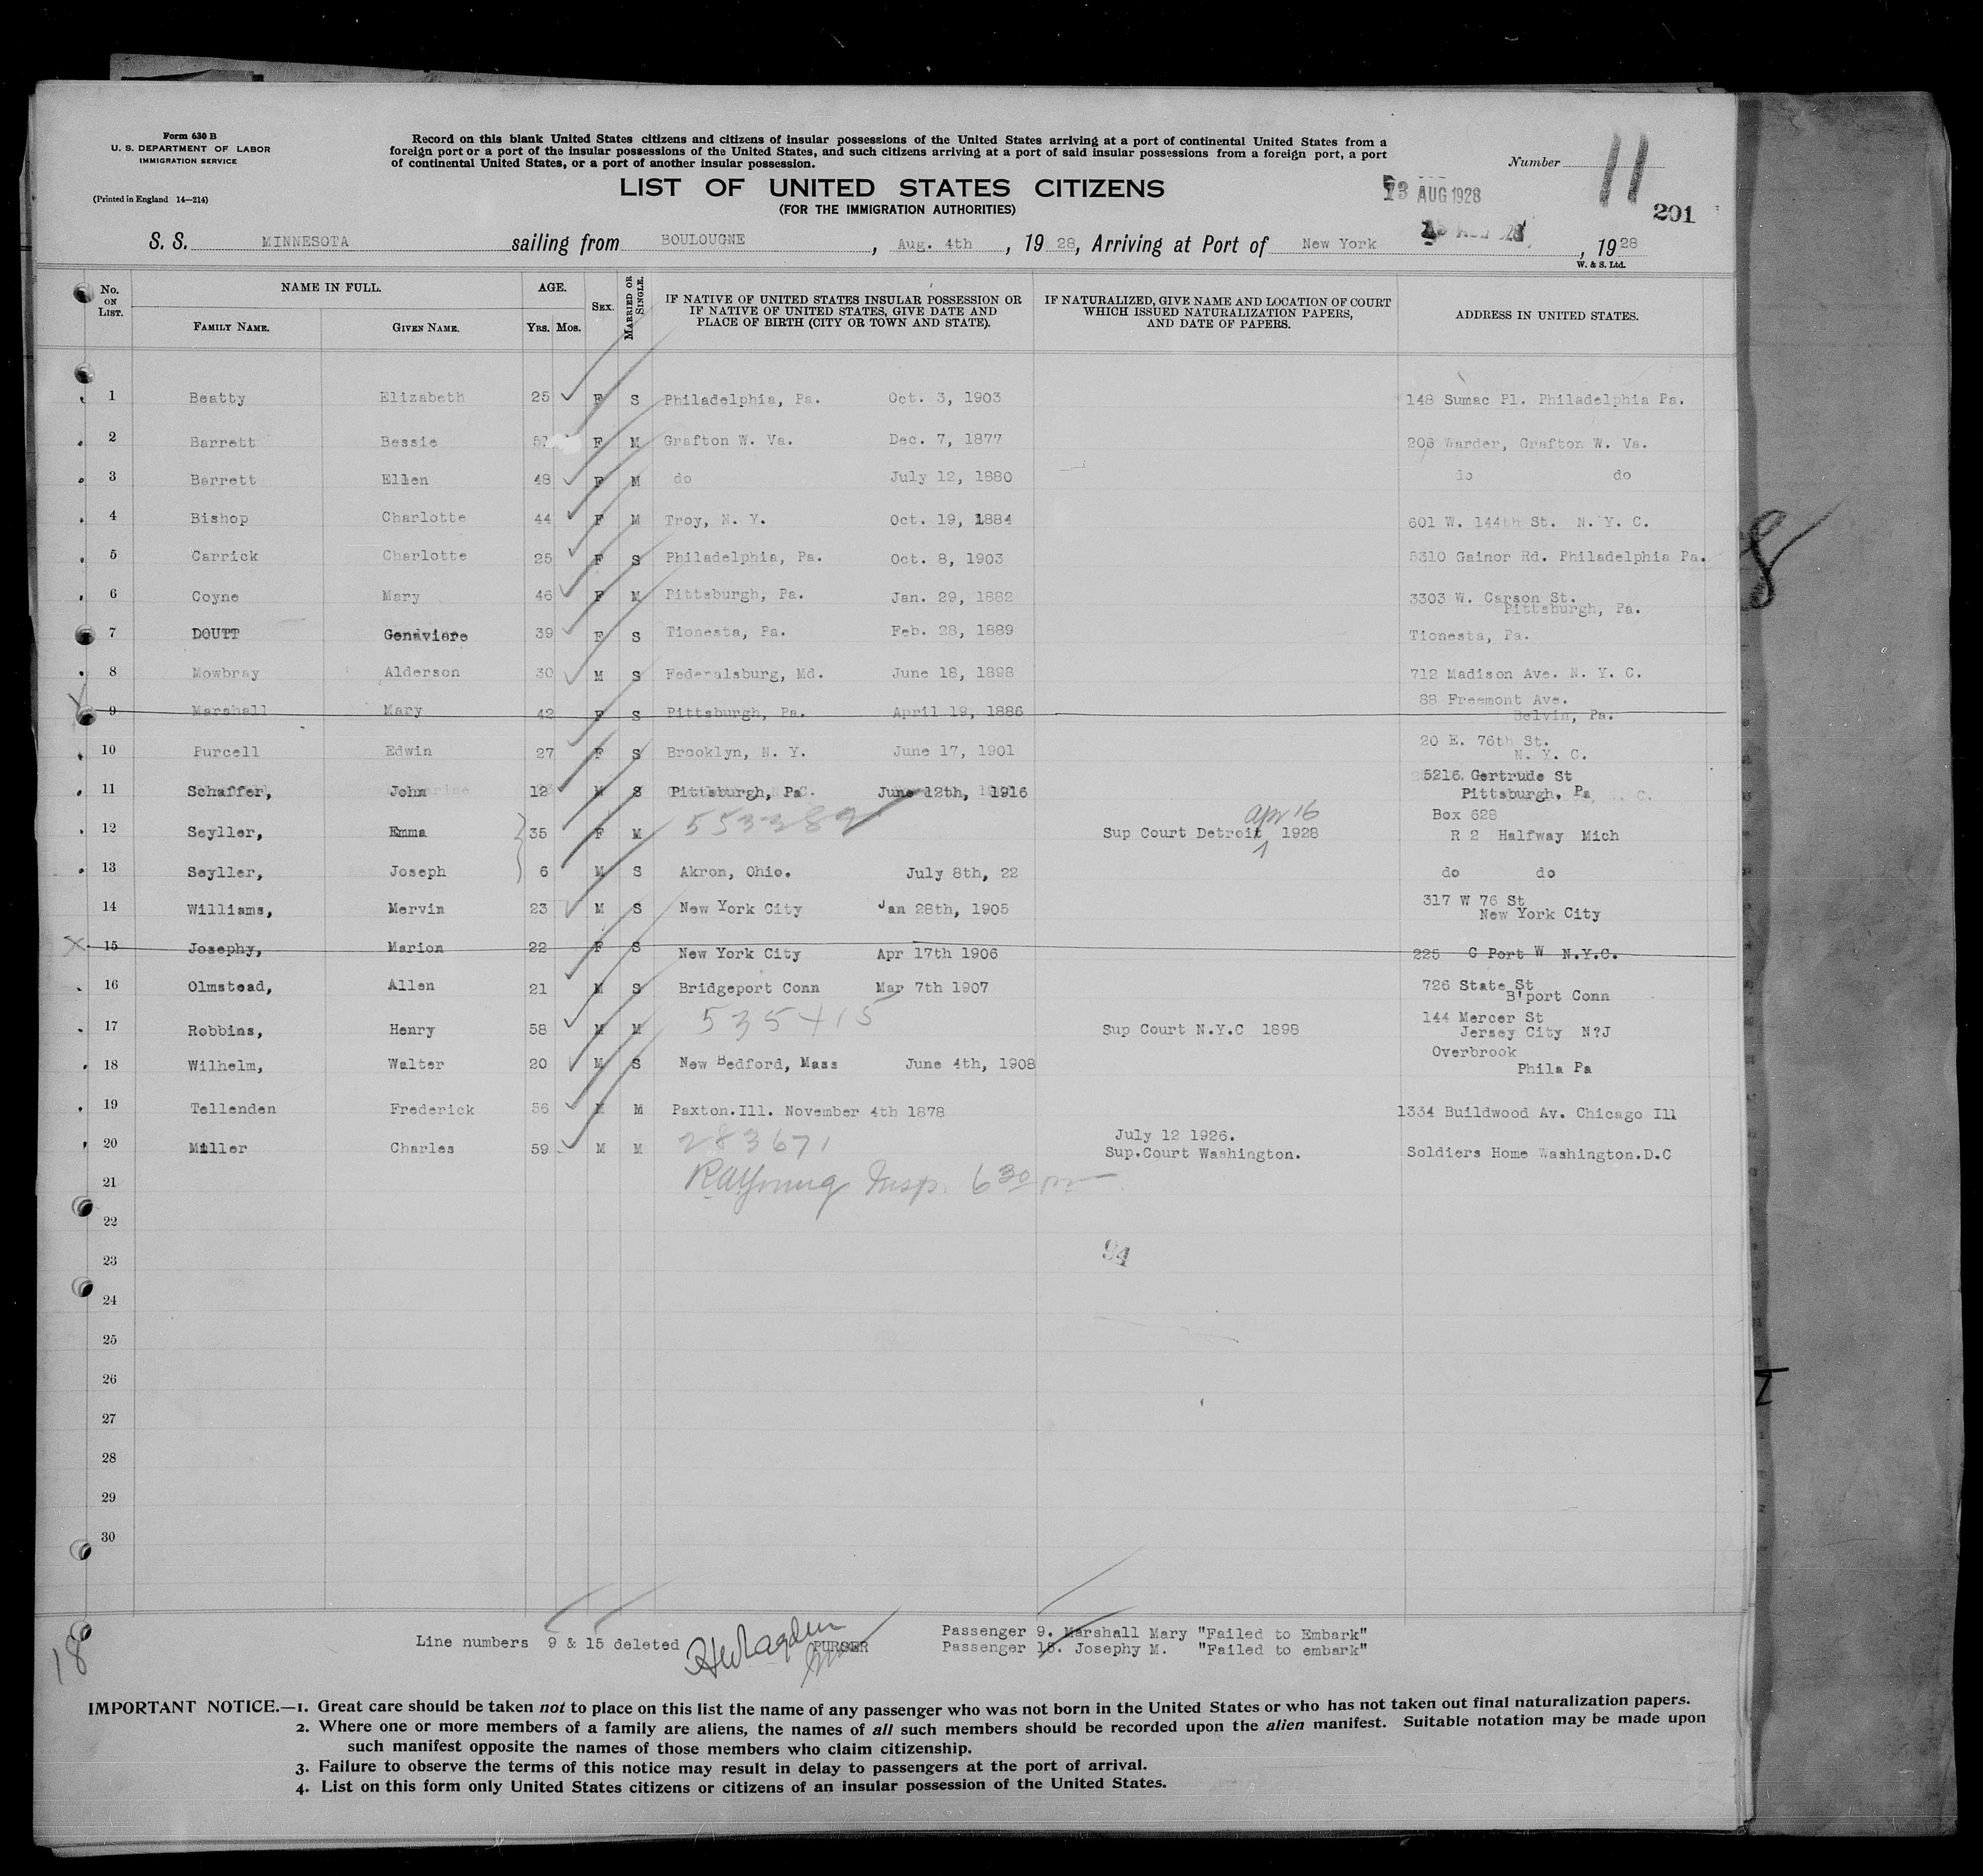 Form 630 B
U. S. DEPARTMENT OF LABOR
IMMIGRATION SERVICE
(Printed in England 14—214)
Record on this blank United States citizens and citizens of insular possessions of the United States arriving at a port of continental United States from a
foreign port or a port of the insular possessions of the United States, and such citizens arriving at a port of said insular possessions from a foreign port, a port
of continental United States, or a port of another insular possession.
Number 11
LIST OF UNITED STATES CITIZENS
(FOR THE IMMIGRATION AUTHORITIES)
13 AUG 1928
201
S. S. MINNESOTA sailing from BOULOUGNE, Aug. 4th, 19 28, Arriving at Port of New York, 19 28
W. & S. Ltd.
No. ON LIST. NAME IN FULL. FAMILY NAME. GIVEN NAME. AGE. YRS. MOS. SEX. MARRIED OR SINGLE. IF NATIVE OF UNITED STATES INSULAR POSSESSION OR IF NATIVE OF UNITED STATES, GIVE DATE AND PLACE OF BIRTH (CITY OR TOWN AND STATE). IF NATURALIZED, GIVE NAME AND LOCATION OF COURT WHICH ISSUED NATURALIZATION PAPERS, AND DATE OF PAPERS. ADDRESS IN UNITED STATES.
1 Beatty Elizabeth 25 F S Philadelphia, Pa. Oct. 3, 1903 148 Sumac Pl. Philadelphia Pa.
2 Barrett Bessie 51 F M Grafton W. Va. Dec. 7, 1877 206 Warder, Grafton W. Va.
3 Barrett Ellen 48 F M do July 12, 1880 do do
4 Bishop Charlotte 44 F M Troy, N. Y. Oct. 19, 1884 601 W. 144th St. N. Y. C.
5 Carrick Charlotte 25 F S Philadelphia, Pa. Oct. 8, 1903 5310 Gainor Rd. Philadelphia Pa.
6 Coyne Mary 46 F M Pittsburgh, Pa. Jan. 29, 1882 3303 W. Carson St.
Pittsburgh, Pa.
7 DOUTT Genaviere 39 F S Tionesta, Pa. Feb. 28, 1889 Tionesta, Pa.
8 Mowbray Alderson 30 M S Federalsburg, Md. June 18, 1898 712 Madison Ave. N. Y. C.
9 Marshall Mary 42 F S Pittsburgh, Pa. April 19, 1886 88 Freemont Ave.
Belvin, Pa.
10 Purcell Edwin 27 F S Brooklyn, N. Y. June 17, 1901 20 E. 76th St.
N. Y. C.
11 Schaffer, John 12 M S Pittsburgh, Pa June 12th, 1916 5216. Gertrude St
Pittsburgh. Pa
12 Seyller, Emma 35 F M 553382 Sup Court Detroit Apr 16 1928 Box 628
R 2 Halfway Mich
13 Seyller, Joseph 6 M S Akron, Ohio. July 8th, 22 do do
14 Williams, Mervin 23 M S New York City Jan 28th, 1905 317 W 76 St
New York City
15 Josephy, Marion 22 F S New York City Apr 17th 1906 225 C Port W N.Y.C.
16 Olmstead, Allen 21 M S Bridgeport Conn Mar 7th 1907 726 State St
B'port Conn
17 Robbins, Henry 58 M M 535415 Sup Court N.Y.C 1898 144 Mercer St
Jersey City N?J
18 Wilhelm, Walter 20 M S New Bedford, Mass June 4th, 1908 Overbrook
Phila Pa
19 Tellenden Frederick 56 M M Paxton.Ill. November 4th 1878 1334 Buildwood Av. Chicago Ill
20 Miller Charles 59 M M 283671 July 12 1926.
Sup.Court Washington. Soldiers Home Washington.D.C
21 RAYoung Insp. 6 30 pm
22
23 94
24
25
26
27
28
29
30
Line numbers 9 & 15 deleted PURSER
Passenger 9. Marshall Mary "Failed to Embark"
Passenger 15. Josephy M. "Failed to embark"
18
IMPORTANT NOTICE.—1. Great care should be taken not to place on this list the name of any passenger who was not born in the United States or who has not taken out final naturalization papers.
2. Where one or more members of a family are aliens, the names of all such members should be recorded upon the alien manifest. Suitable notation may be made upon
such manifest opposite the names of those members who claim citizenship.
3. Failure to observe the terms of this notice may result in delay to passengers at the port of arrival.
4. List on this form only United States citizens or citizens of an insular possession of the United States.
8